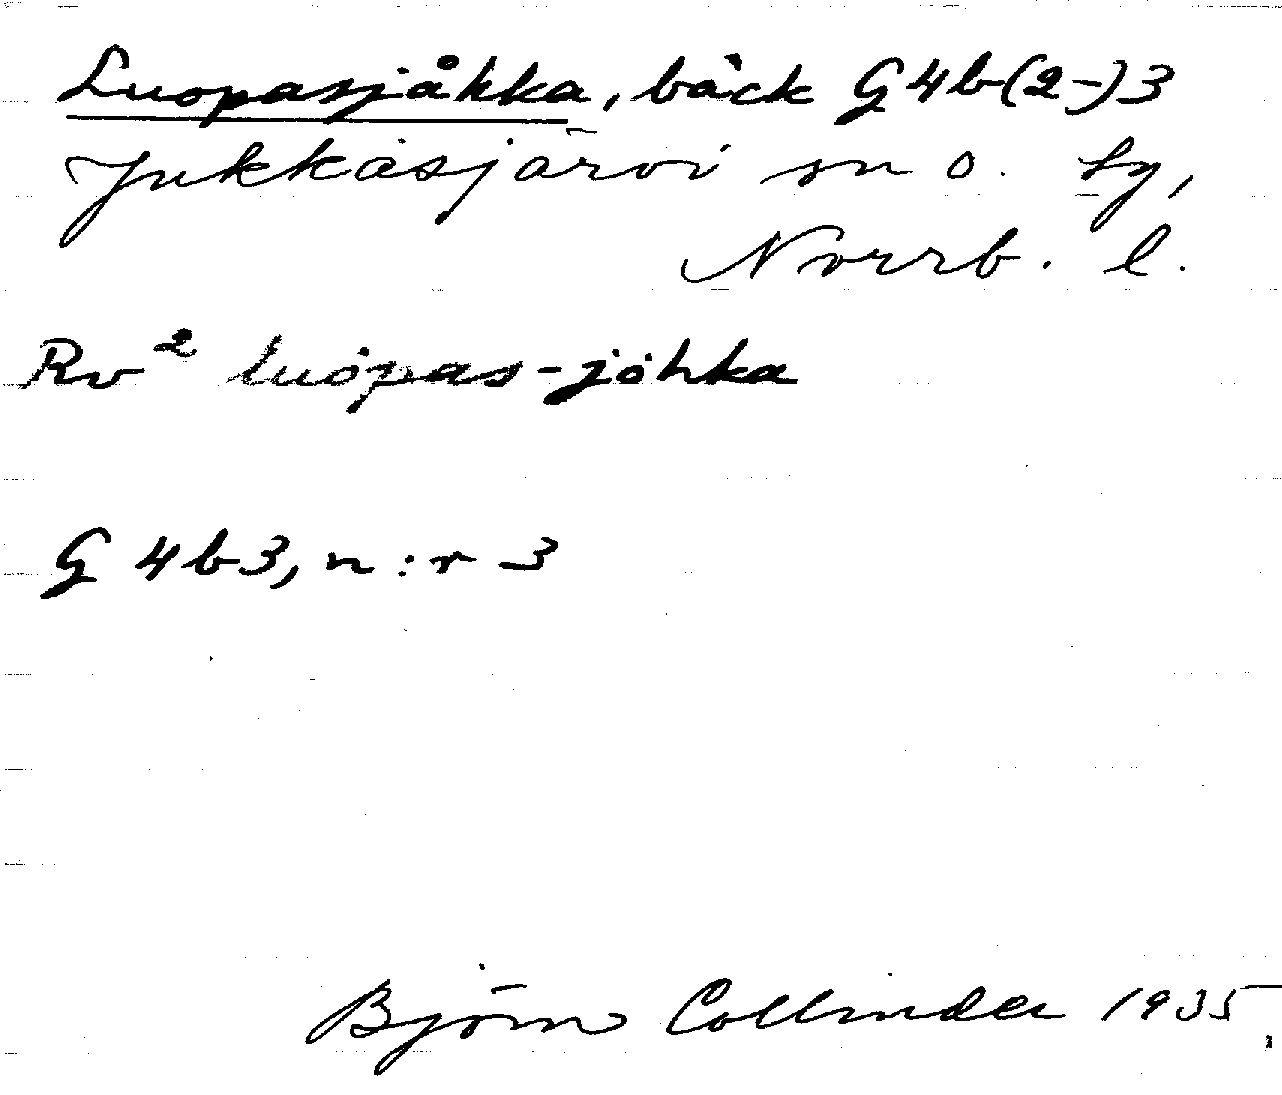 Luopasjåkka, bäck G4b(2-)3
Jukkasjärvi sn o. tg,
Norrb. l.
Rv² luopas-johka
G 4b3, n:r 3
Björn Collinder 1935